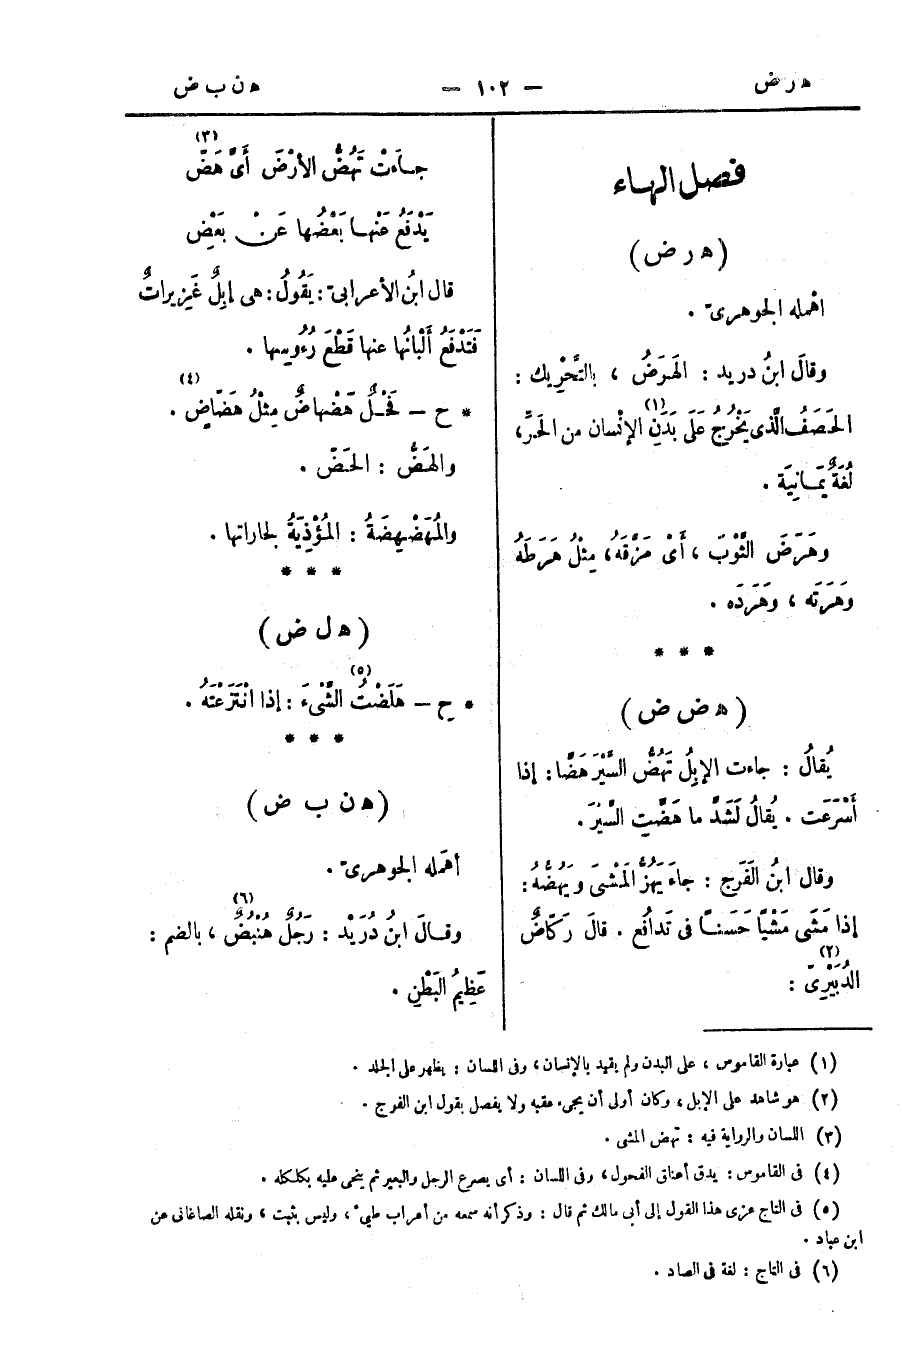 هرض
— ١٠٢ —
هنبض
فصل الهاء
( ه ر ض )
أهْمله الجوهرىّ .
وقالَ ابنُ دريد : الهَرَضُ ، بالتَّحْرِيك :
الحَصَفُ الَّذى يَخْرُجُ عَلَى بَدَنِ (١) الإنْسان من الحَرِّ،
لُغَةٌ يَمَـانِيَة .
وهَرَضَ الثَّوْبَ ، أَىْ مَزَّقهُ ، مِثْلُ هَرَطَهُ
وهَرَتَه ، وهَرَدَه .
* * *
( ه ض ض )
يُقالُ : جاءت الإبِلُ تَهُضُّ السَّيْرَ هَضًّا : إذا
أَسْرَعَت . يُقالُ لَشَدَّ ما هَضَّتِ السَّيْرَ .
وقال ابنُ الفَرَج : جاءَ يَهُزُّ المَشْىَ ويَهُضُّهُ :
إذا مَشَى مَشْيًا حَسَنـًا فى تَدافُعٍ . قالَ رَكّاضٌ
الدُّبَيْرِىّ (٢) :
جـاءَتْ تَهُضُّ الأرْضَ أَىَّ هَضِّ (٣)
يَدْفَعُ عَنْهـا بَعْضُها عَنْ بَعْضِ
قال ابنُ الأعرابىّ : يَقُولُ : هى إبِلٌ غَزِيراتٌ
فَتَدْفَعُ أَلْبانُها عنها قَطْعَ رُءُوسِها .
* ح – فَحْـلٌ هَضْهاضٌ مِثْلُ هَضّاضٍ (٤) .
والهَضُّ : الحَضّ .
والمُهَضْهِضَةُ : المُؤْذِيَةُ لجاراتها .
* * *
( ه ل ض )
* ح – هَلَضْتُ (٥) الشَّىْءَ : إذا انْتَزَعْتَهُ .
* * *
( ه ن ب ض )
أهمَله الجوهرىّ .
وقـالَ ابنُ دُرَيْد : رَجُلٌ هُنْبُضٌ (٦) ، بالضم :
عَظِيمُ البَطْنِ .
(١) عبارة القاموس ، على البدن ولم يقيد بالإنسان ، وفى اللسان : يظهر على الجلد .
(٢) هو شاهد على الإبل ، وكان أولى أن يجىء عقبه ولا يفصل بقول ابن الفرج .
(٣) اللسان والرواية فيه : تهض المشى .
(٤) فى القاموس : يدق أعناق الفحول ، وفى اللسان : أى يصرع الرجل والبعير ثم ينحى عليه بكلكله .
(٥) فى التاج عزى هذا القول إلى أبى مالك ثم قال : وذكر أنه سمعه من أعراب طيىء ، وليس بثبت ، ونقله الصاغانى عن
ابن عباد .
(٦) فى التاج : لغة فى الصاد .